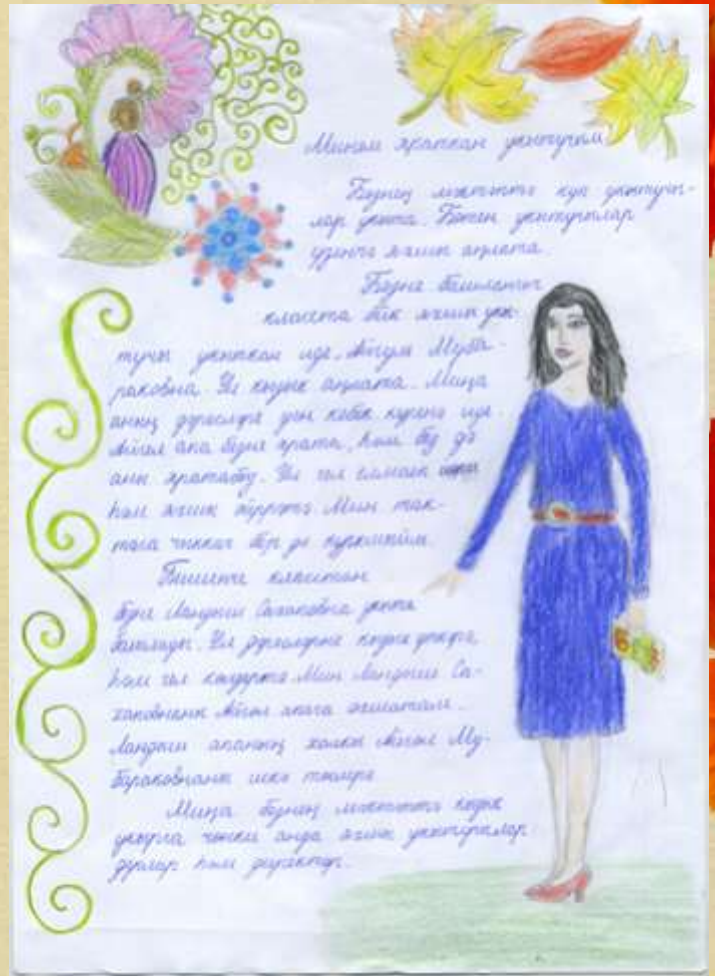 Минем яраткан укытучым
Безнең мәктәптә күп укытучы-
лар укыта. Бөтен укытучылар
үзенчә яхшы аңлата.
Безне башлангыч
класста бик яхшы укы-
тучы укыткан иде, Айгуль Муба-
раковна. Ул кызык аңлата. Миңа
аның дәресләре уен кебек күренә иде.
Айгөл апа безне ярата, һәм без дә
аны яратабыз. Ул гел елмаеп
һәм яхшы өйрәтә. Мин так-
тага чыккач бер дә курыкмыйм.
Бишенче класстан
безне Ландыш Сахаповна укыта
башлады. Ул дәресләрне кызык үткәрә
һәм гел көлдертә. Мин Ландыш Са-
хаповнаны Айгөл апага охшатам.
Ландыш апаның холкы Айгөл Му-
бараковнаны искә төшерә
Миңа безнең мәктәптә кызык
укырга чөнки анда яхшы укытучылар
дуслар һәм директор.